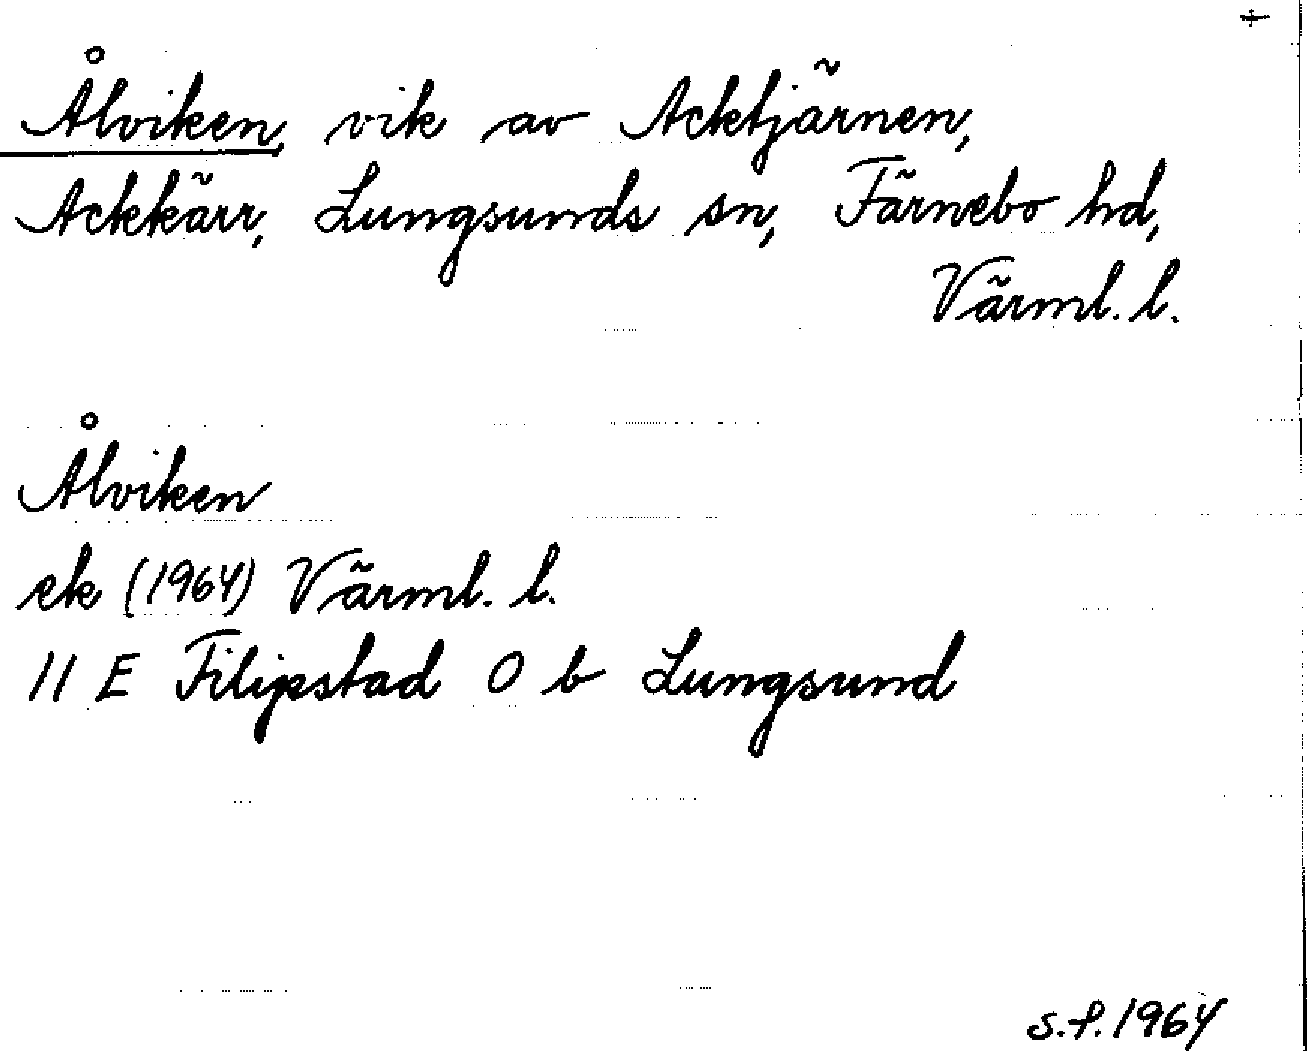 +
Ålviken, vik av Acktjärnen,
Ackkärr, Lungsunds sn, Färnebo hd,
Värml. l.
Ålviken
ek (1964) Värml. l.
11 E Filipstad 0 b Lungsund
S.F. 1964